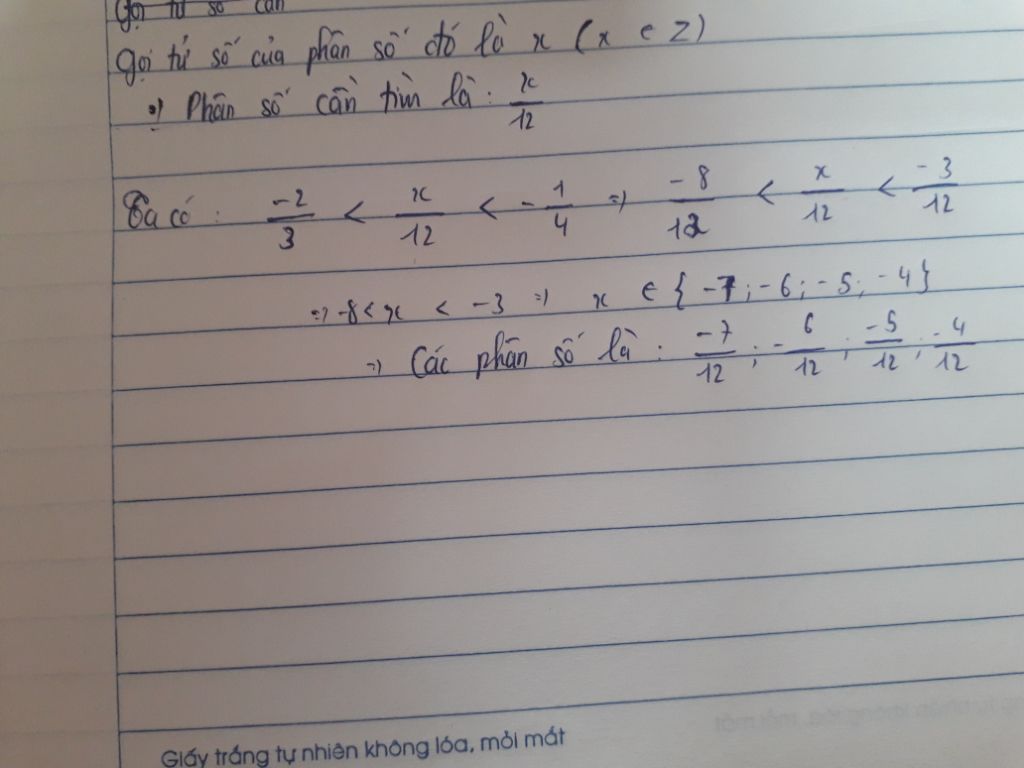 Gọi tử số cần
Gọi tử số của phân số đó là x (x ∈ Z)
=> Phân số cần tìm là: x/12
Ta có: -2/3 < x/12 < -1/4 => -8/12 < x/12 < -3/12
=> -8 < x < -3 => x ∈ {-7; -6; -5; -4}
=> Các phân số là: -7/12; -6/12; -5/12; -4/12
Giấy trắng tự nhiên không lóa, mỏi mắt